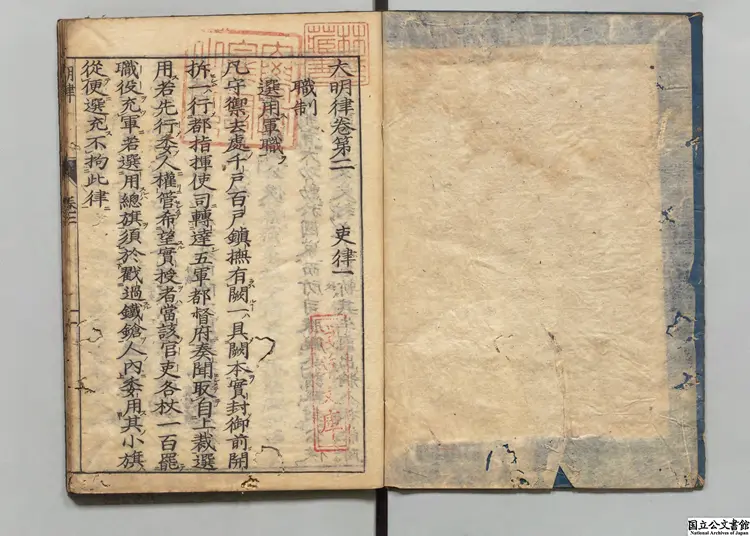 大明律卷第二　吏律一
職制
選用軍職
凡守禦去處千戶百戶鎮撫有闕一具闕本實封御前開
拆一行都指揮使司轉達五軍都督府奏聞取自上裁選
用若先行委人權管希望實授者當該官吏各杖一百罷
職役充軍若選用總旗須於戳過鐵鎗人內委用其小旗
從便選充不拘此律
明律
卷二
一
国立公文書館
National Archives of Japan